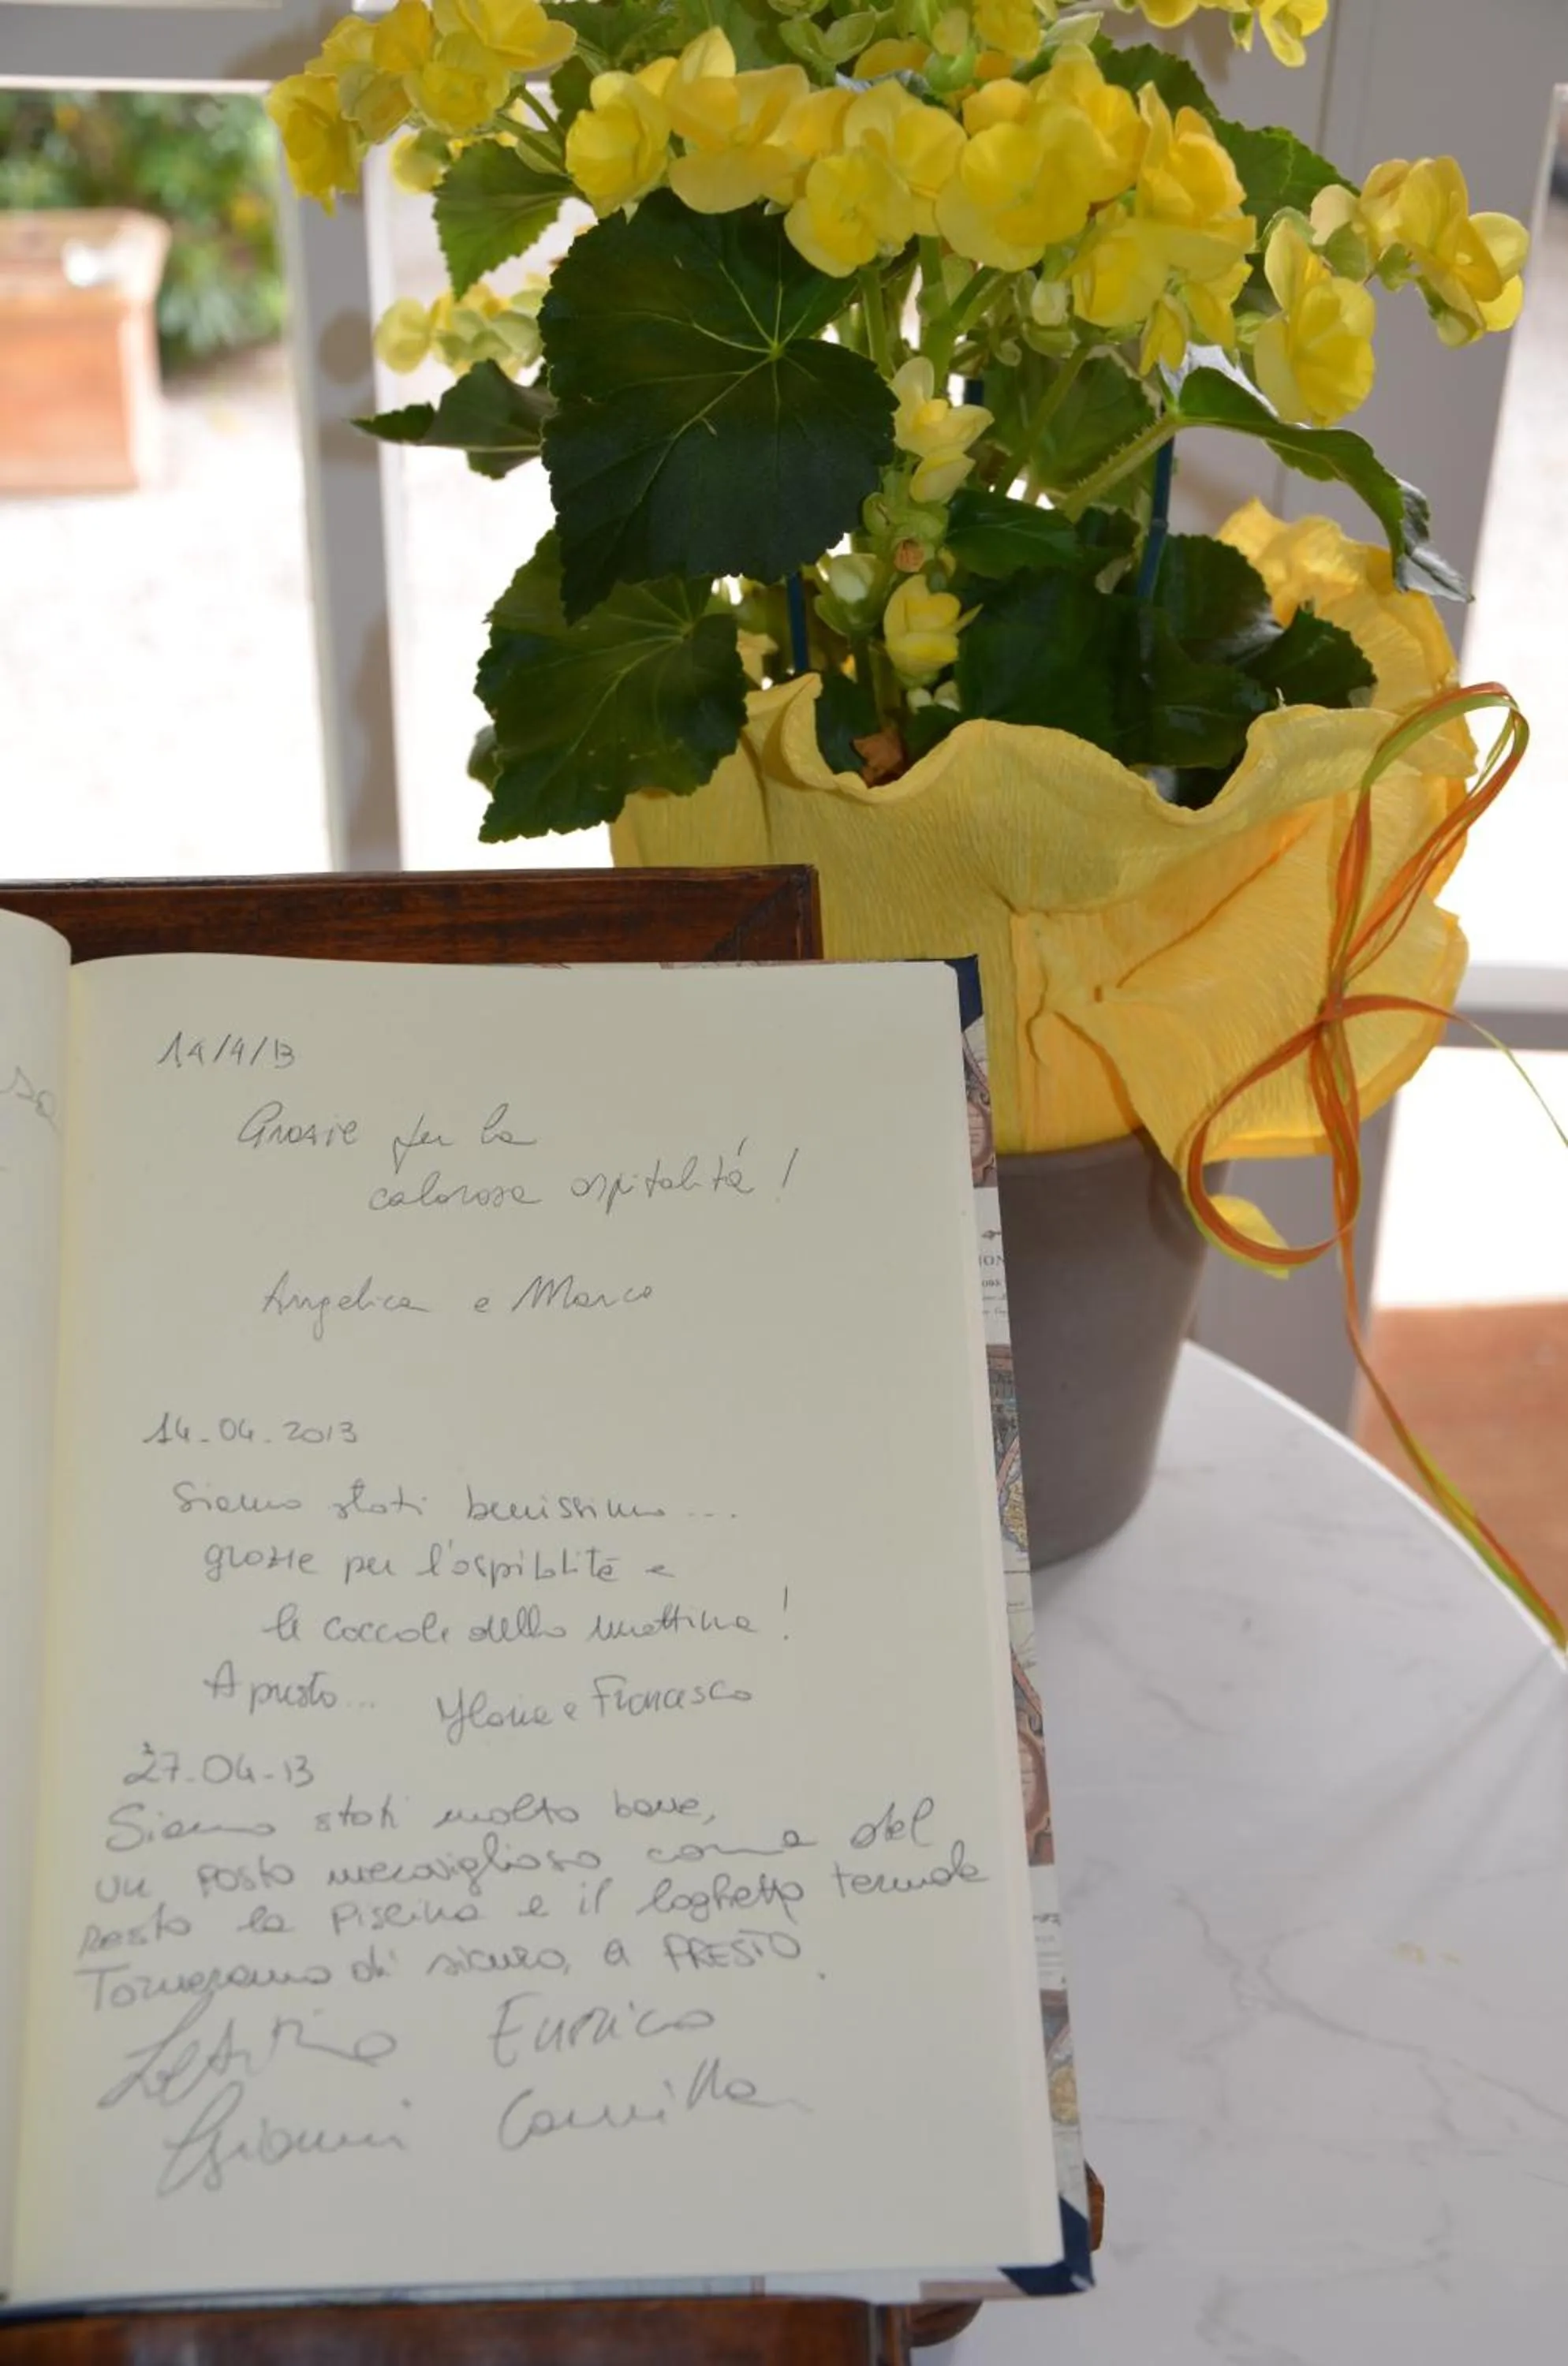 14/4/13
Grazie per la
calorosa ospitalità!
Angelica e Marco
14-04-2013
Siamo stati benissimo...
grazie per l'ospitalità e
le coccole della mattina!
A presto... Ylaria e Francesco
27-04-13
Siamo stati molto bene,
un posto meraviglioso come del
resto la piscina e il laghetto termale
Torneremo di sicuro, a PRESTO.
Enrico
Gianni Camilla